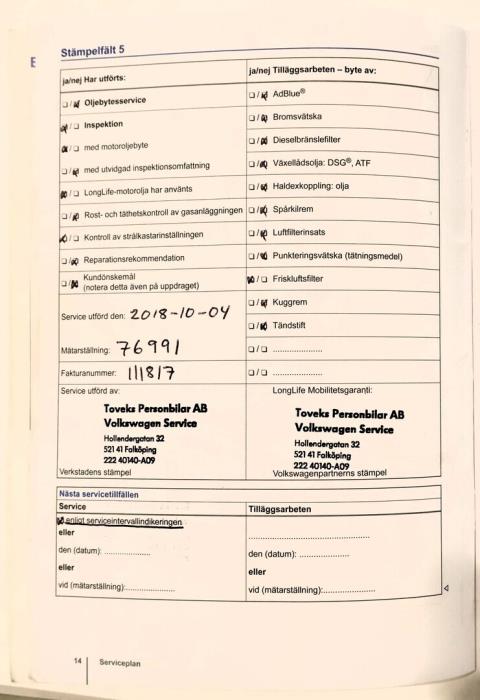 Stämpelfält 5
E
ja/nej Har utförts:
ja/nej Tilläggsarbeten – byte av:
Oljebytesservice
AdBlue®
Inspektion
Bromsvätska
med motoroljebyte
Dieselbränslefilter
med utvidgad inspektionsomfattning
Växellådsolja: DSG®, ATF
LongLife-motorolja har använts
Haldexkoppling: olja
Rost- och täthetskontroll av gasanläggningen
Spårkilrem
Kontroll av strålkastarinställningen
Luftfilterinsats
Reparationsrekommendation
Punkteringsvätska (tätningsmedel)
Kundönskemål
(notera detta även på uppdraget)
Friskluftsfilter
Kuggrem
Service utförd den: 2018-10-04
Tändstift
Mätarställning: 76991
Fakturanummer: 111817
Service utförd av:
LongLife Mobilitetsgaranti:
Toveks Personbilar AB
Volkswagen Service
Hollendergatan 32
521 41 Falköping
222 40140-A09
Verkstadens stämpel
Toveks Personbilar AB
Volkswagen Service
Hollendergatan 32
521 41 Falköping
222 40140-A09
Volkswagenpartnerns stämpel
Nästa servicetillfällen
Service
Tilläggsarbeten
enligt serviceintervallindikeringen
eller
den (datum):
den (datum):
eller
eller
vid (mätarställning):
vid (mätarställning):
14 Serviceplan